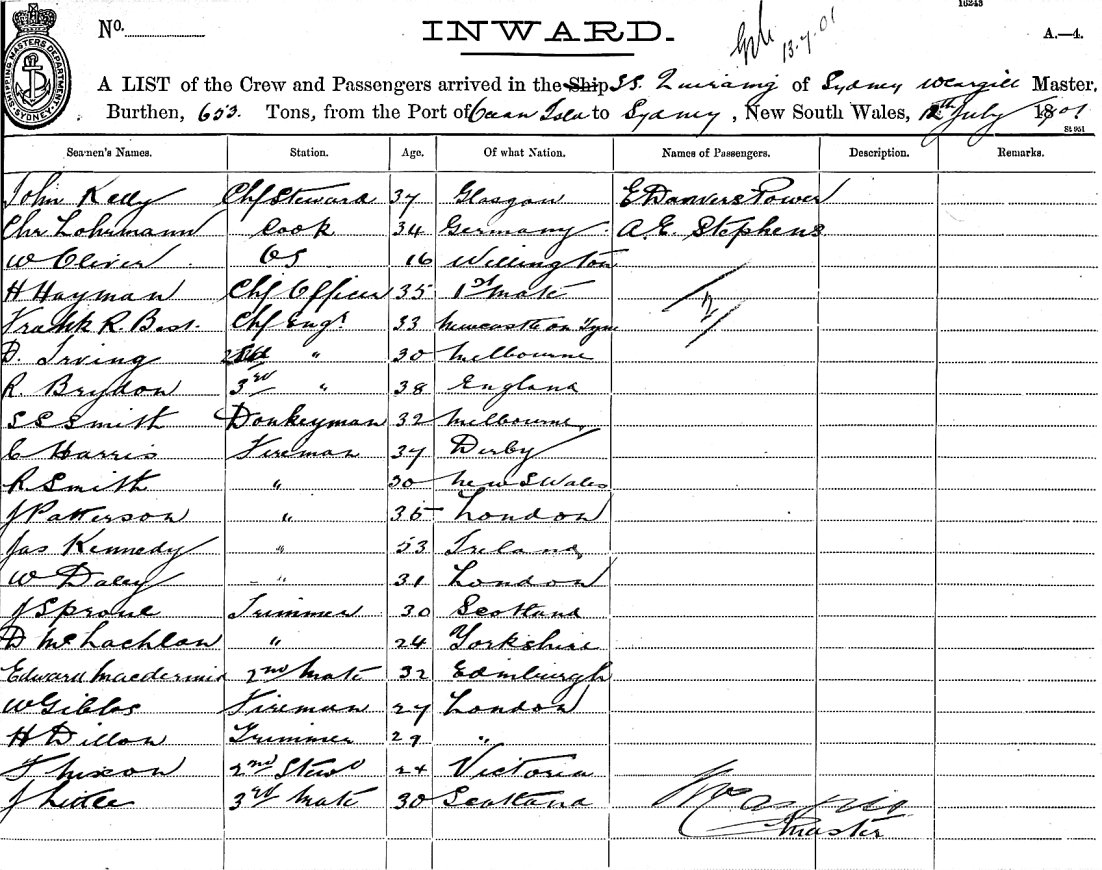 16243
No.
INWARD.
13.7.01
A.—4.
SHIPPING MASTERS DEPARTMENT SYDNEY
A LIST of the Crew and Passengers arrived in the Ship SS. Quiraing of Sydney Weargill Master,
Burthen, 653. Tons, from the Port of Ocean Isld to Sydney, New South Wales, 12th July 1901
St 951
Seamen's Names. Station. Age. Of what Nation. Names of Passengers. Description. Remarks.
John Kelly Chf Steward 37 Glasgow E Danvers Power
Chr Lohrmann Cook 34 Germany A. E. Stephens
W Oliver OS 16 Wellington
H Hayman Chf Officer 35 1st Mate 2
Frank R. Best. Chf Engr 33 Newcastle on Tyne
D. Irving 2nd " 30 Melbourne
R. Brydon 3rd " 38 England
S S Smith Donkeyman 32 Melbourne
C Harris Fireman 37 Derby
R Smith " 30 New S Wales
J Patterson " 35 London
Jas Kennedy " 53 Ireland
W Daley " 31 London
J Sproul Trimmer 30 Scotland
D McLachlan " 24 Yorkshire
Edward Macdermid 2nd Mate 32 Edinburgh
W Gibbs Fireman 27 London
H Dillon Trimmer 29 "
F Nixon 2nd Stewd 24 Victoria
J Little 3rd Mate 30 Scotland
Master